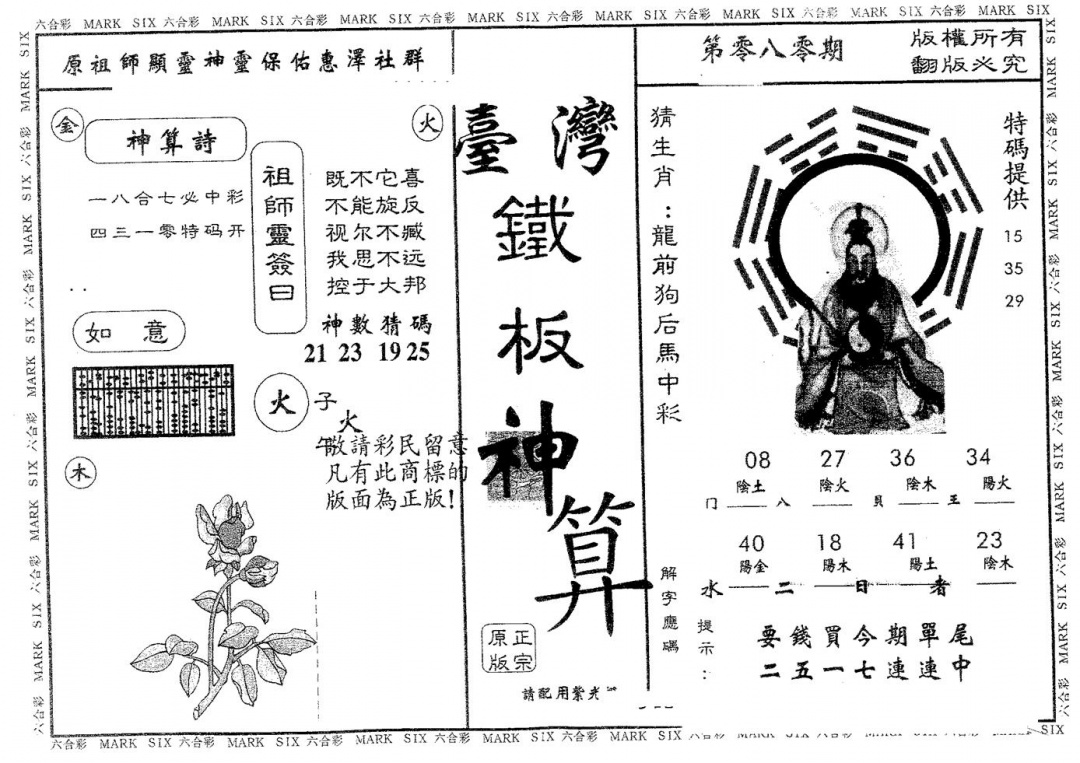 六合彩 MARK SIX 六合彩 MARK SIX 六合彩 MARK SIX 六合彩 MARK SIX 六合彩 MARK SIX 六合彩 MARK SIX 六合彩 MARK SIX 六合彩 MARK SIX
原祖師顯靈神靈保佑惠澤社群
金
神算詩
火
一八合七必中彩
四三一零特码开
祖師靈簽曰
既不它喜
不能旋反
视尔不臧
我思不远
控于大邦
神數猜碼
21 23 19 25
如意
火
子
火
午
敬請彩民留意
凡有此商標的
版面為正版!
木
臺灣
鐵
板
神
算
正宗
原版
請配用紫光
第零八零期
版權所有
翻版必究
猜生肖:龍前狗后馬中彩
特碼提供
15
35
29
08 27 36 34
陰土 陰火 陰木 陽火
门 八 貝 王
40 18 41 23
陽金 陽木 陽土 陰木
水 二 日 者
解字應碼
提示:
要錢買今期單尾
二五一七連連中
六合彩 MARK SIX 六合彩 MARK SIX 六合彩 MARK SIX 六合彩 MARK SIX 六合彩 MARK SIX